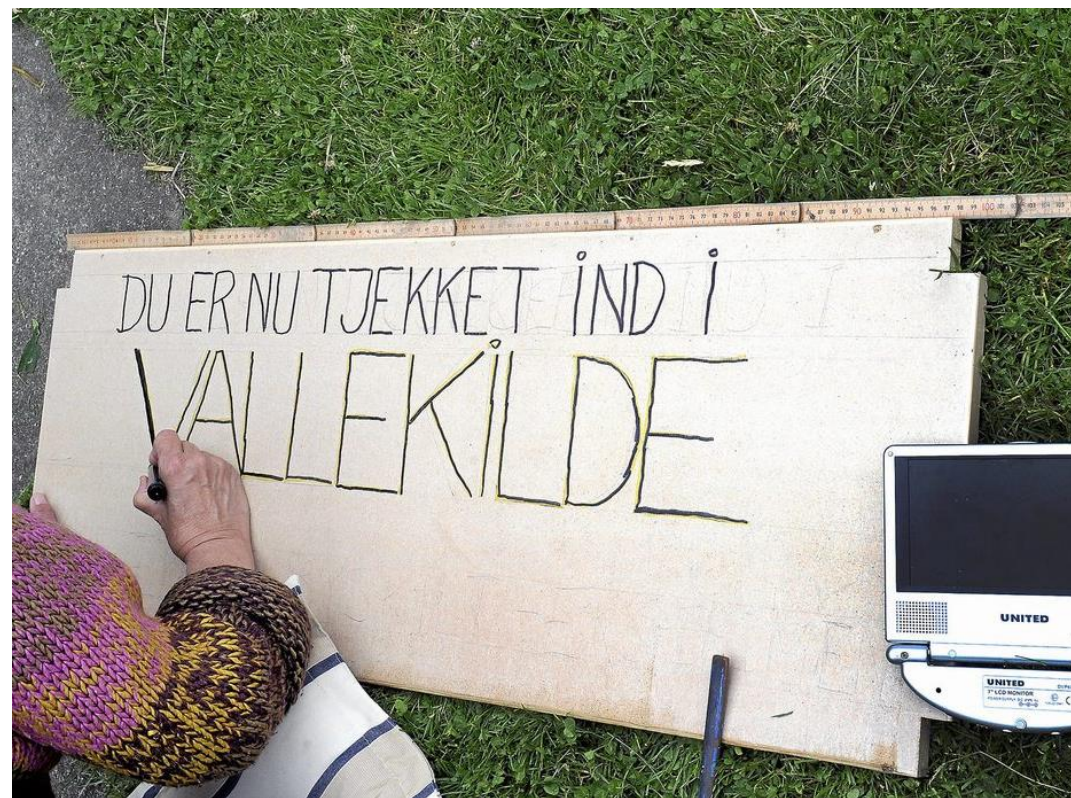 DU ER NU TJEKKET iND i
VALLEKiLDE
UNITED
UNITED
7" LCD MONITOR